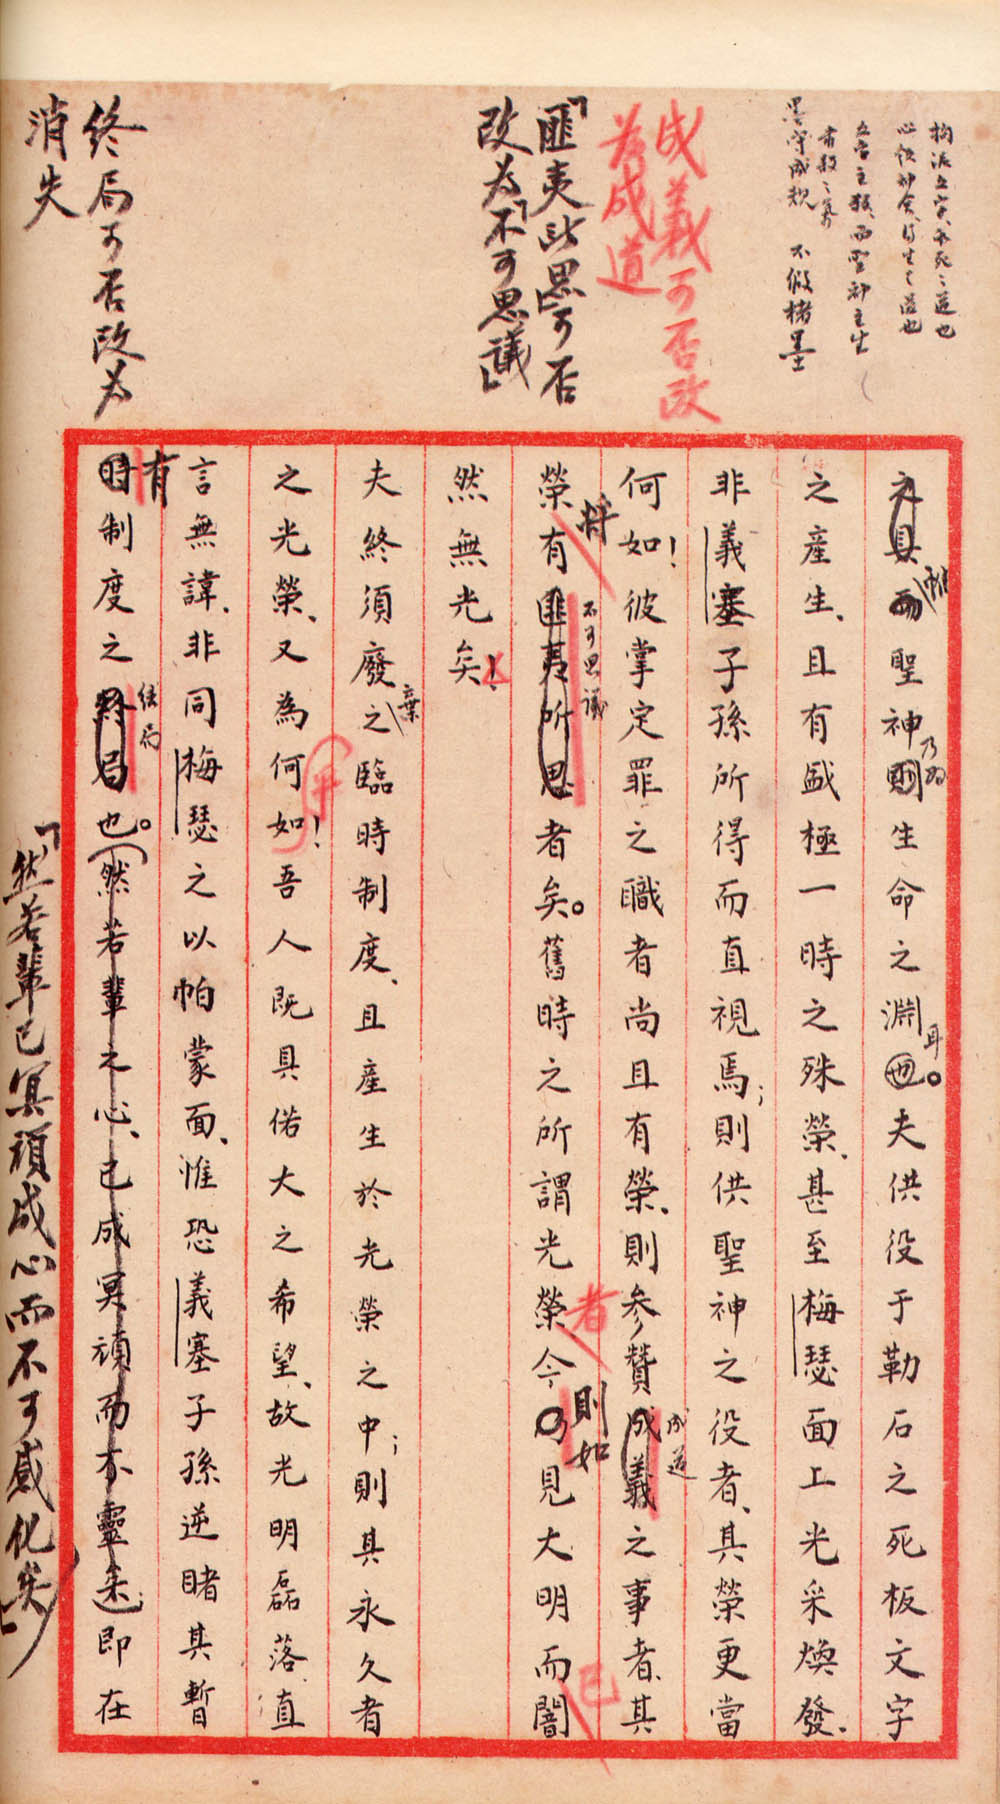 拘泥文字、乃死之道也
心領神會、乃生之道也
文字主殺、而聖神主生
墨守成規 不假楮墨
成義可否改
為成道
「匪夷所思」可否
改為「不可思議」
終局可否改為
消失
之具而聖神則生命之淵也。夫供役于勒石之死板文字
惟
乃為
耳。
之產生、且有盛極一時之殊榮、甚至梅瑟面上光采煥發、
非義塞子孫所得而直視焉；則供聖神之役者、其榮更當
何如！彼掌定罪之職者尚且有榮、則參贊成義之事者、其
成道
榮有匪夷所思者矣。舊時之所謂光榮今乃見大明而闇
將
不可思議
者
則如
已
然無光矣！
夫終須廢之臨時制度、且產生於光榮之中；則其永久者
棄
之光榮、又為何如！吾人既具偌大之希望、故光明磊落、直
言無諱、非同梅瑟之以帕蒙面、惟恐義塞子孫逆睹其暫
時制度之終局也。然若輩之心、已成冥頑而不靈矣；即在
有
結局
「然若輩已冥頑成心而不可感化矣」